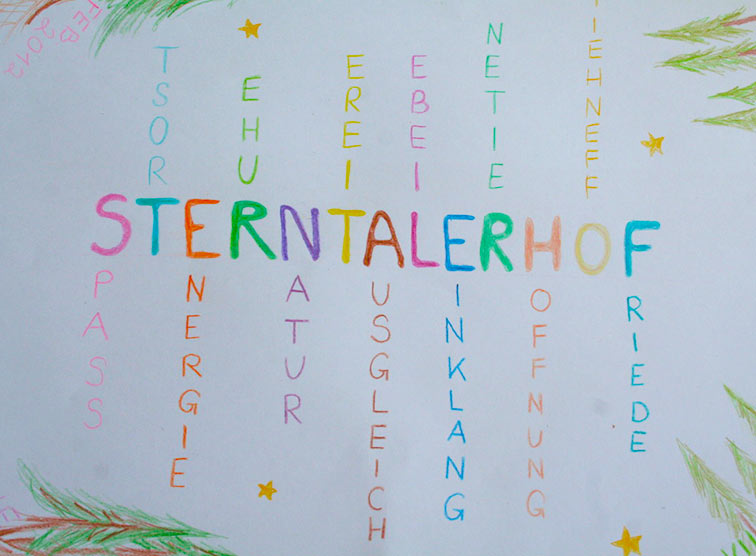 FEB
2012
ROST
UHE
IERE
IEBE
EITEN
FFENHEIT
STERNTALERHOF
PASS
NERGIE
ATUR
USGLEICH
INKLANG
OFFNUNG
RIEDE